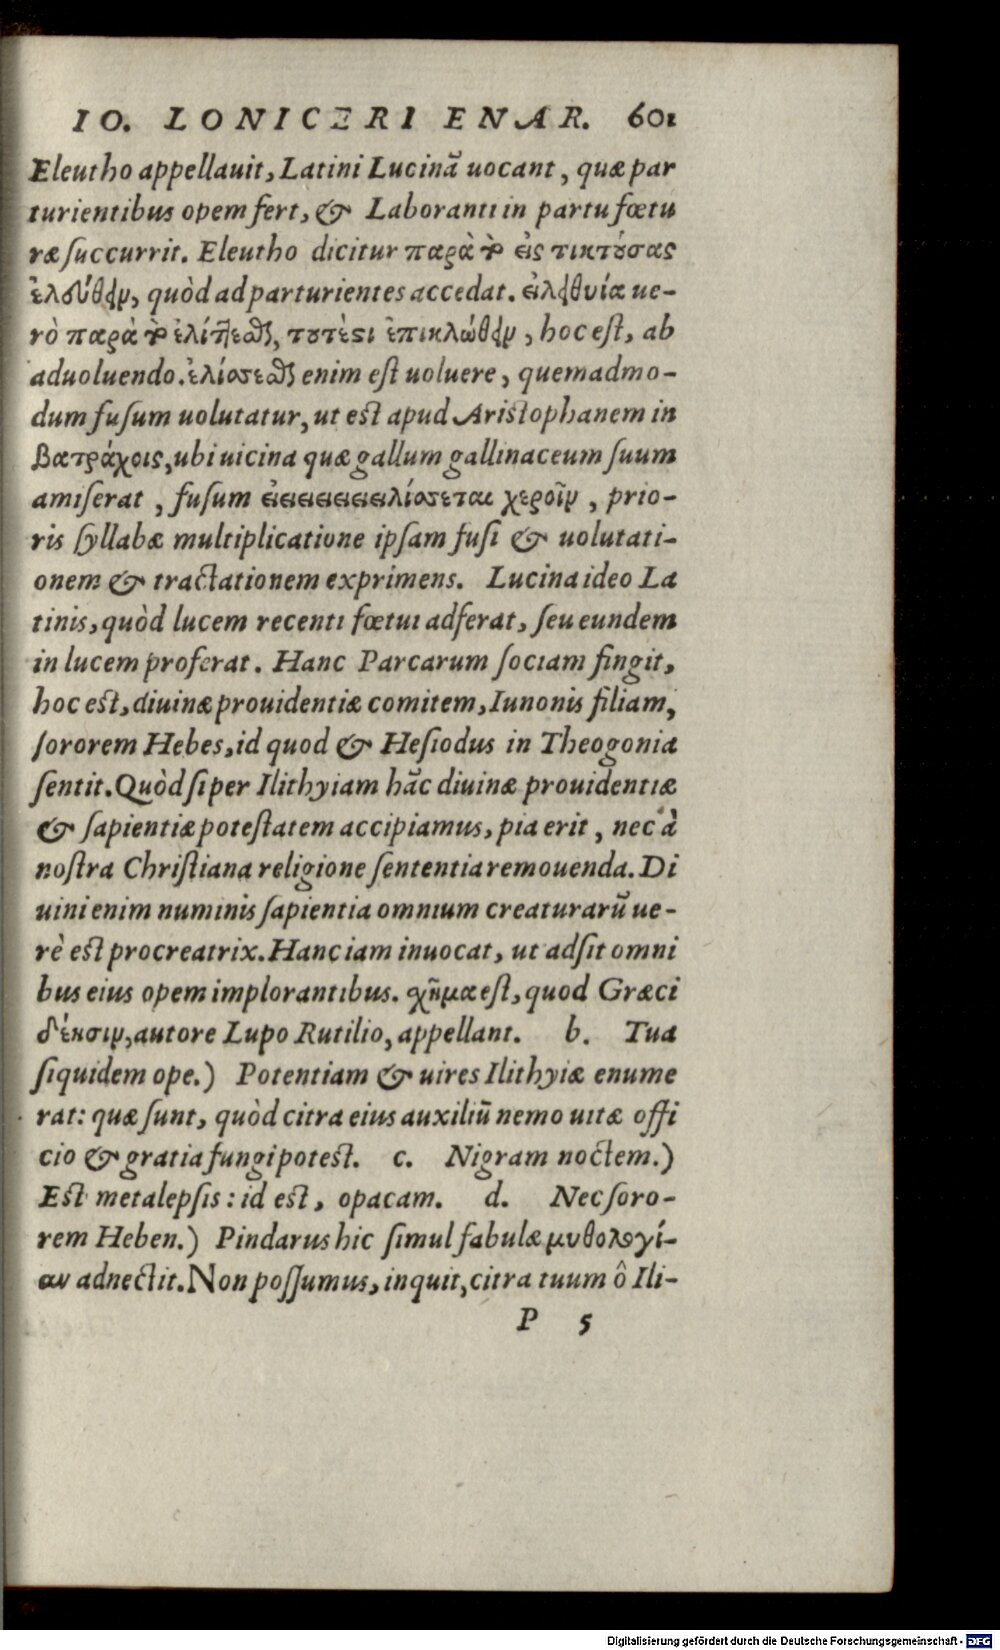 IO. LONICERI ENAR. 601
Eleutho appellauit, Latini Lucinā uocant, quæ par
turientibus opem fert, & Laboranti in partu fœtu
ræ succurrit. Eleutho dicitur παρὰ τὸ εἰς τικτούσας
ἐλεύθειν, quòd ad parturientes accedat. εἰλειθυία ue-
rò παρὰ τὸ ἑλίττεσθαι, τουτέστι ἐπικλώθειν, hoc est, ab
aduoluendo. ἑλίσσεσθαι enim est uoluere, quemadmo-
dum fusum uolutatur, ut est apud Aristophanem in
Βατράχοις, ubi uicina quæ gallum gallinaceum suum
amiserat, fusum εἱειειειειειλίσσεται χεροῖν, prio-
ris syllabæ multiplicatione ipsam fusi & uolutati-
onem & tractationem exprimens. Lucina ideo La
tinis, quòd lucem recenti fœtui adferat, seu eundem
in lucem proferat. Hanc Parcarum sociam fingit,
hoc est, diuinæ prouidentiæ comitem, Iunonis filiam,
sororem Hebes, id quod & Hesiodus in Theogonia
sentit. Quòd si per Ilithyiam hāc diuinæ prouidentiæ
& sapientiæ potestatem accipiamus, pia erit, nec à
nostra Christiana religione sententia remouenda. Di
uini enim numinis sapientia omnium creaturarū ue-
rè est procreatrix. Hanc iam inuocat, ut adsit omni
bus eius opem implorantibus. χῆμα est, quod Græci
δέησιν, autore Lupo Rutilio, appellant. b. Tua
siquidem ope.) Potentiam & uires Ilithyiæ enume
rat: quæ sunt, quòd citra eius auxiliū nemo uitæ offi
cio & gratia fungi potest. c. Nigram noctem.)
Est metalepsis: id est, opacam. d. Nec soro-
rem Heben.) Pindarus hic simul fabulæ μυθολογί-
αν adnectit. Non possumus, inquit, citra tuum ô Ili-
P 5
Digitalisierung gefördert durch die Deutsche Forschungsgemeinschaft - DFG